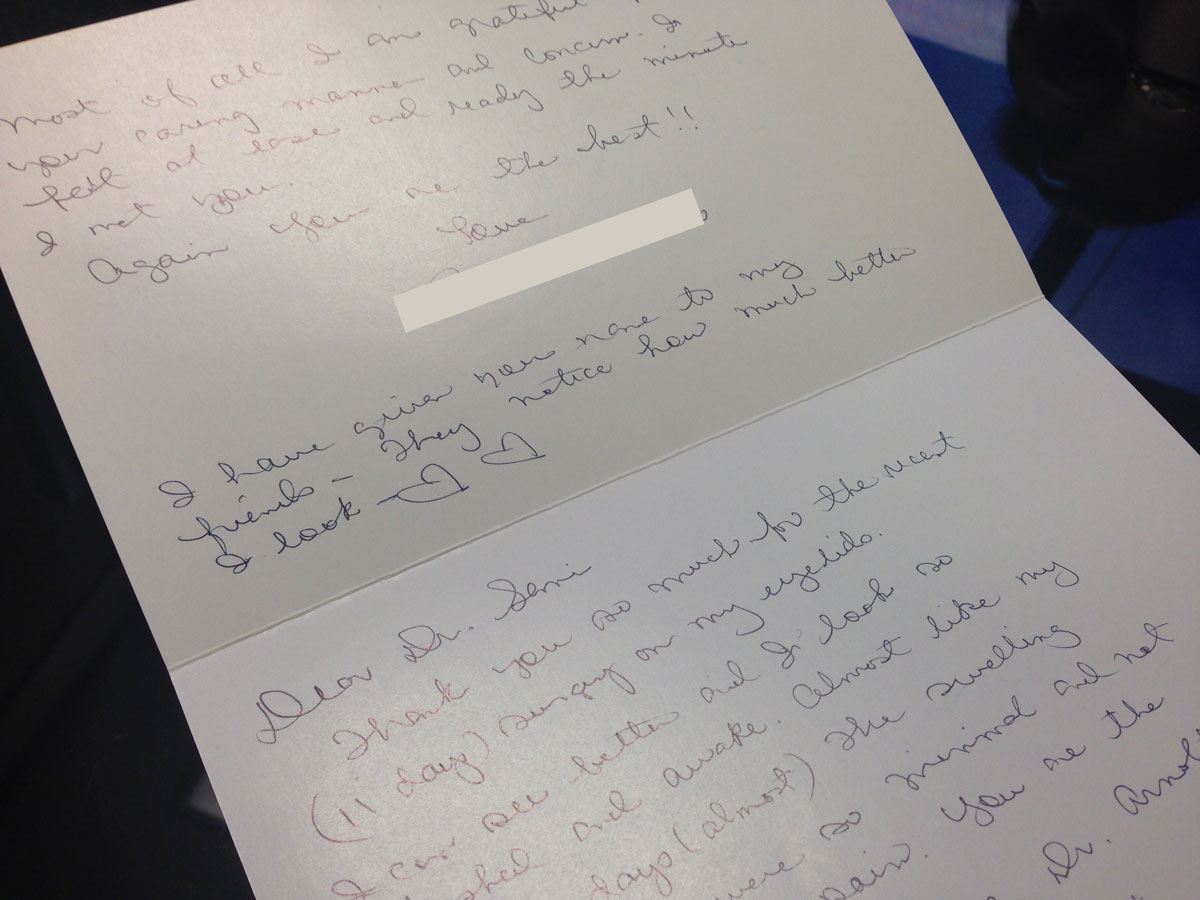 Most of all I am grateful
your caring manner and concern. I
felt at ease and ready the minute
I met you.
Again you are the best!!
Love
I have given your name to my
friends - They notice how much better
I look -
Dear Dr. Sami
Thank you so much for the recent
(11 day) surgery on my eyelids.
I can see better and I look so
and awake. Almost like my
days (almost) The swelling
were so minimal and not
pain. You are the
Dr. Arnol